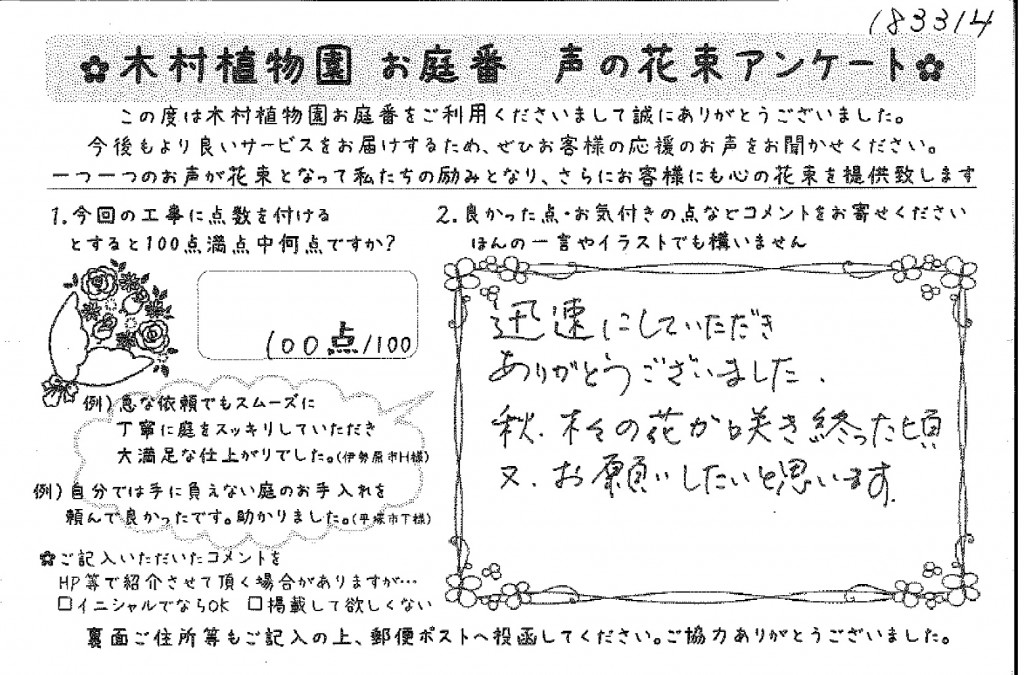 183314
木村植物園 お庭番 声の花束アンケート
この度は木村植物園お庭番をご利用くださいまして誠にありがとうございました。
今後もより良いサービスをお届けするため、ぜひお客様の応援のお声をお聞かせください。
一つ一つのお声が花束となって私たちの励みとなり、さらにお客様にも心の花束を提供致します
1.今回の工事に点数を付ける
とすると100点満点中何点ですか?
100点/100
例)急な依頼でもスムーズに
丁寧に庭をスッキリしていただき
大満足な仕上がりでした。(伊勢原市H様)
例)自分では手に負えない庭のお手入れを
頼んで良かったです。助かりました。(平塚市T様)
✿ご記入いただいたコメントを
HP等で紹介させて頂く場合がありますが…
□イニシャルでならOK □掲載して欲しくない
2.良かった点・お気付きの点などコメントをお寄せください
ほんの一言やイラストでも構いません
迅速にしていただき
ありがとうございました.
秋.木々の花が咲き終った頃
又.お願いしたいと思います.
裏面ご住所等もご記入の上、郵便ポストへ投函してください。ご協力ありがとうございました。